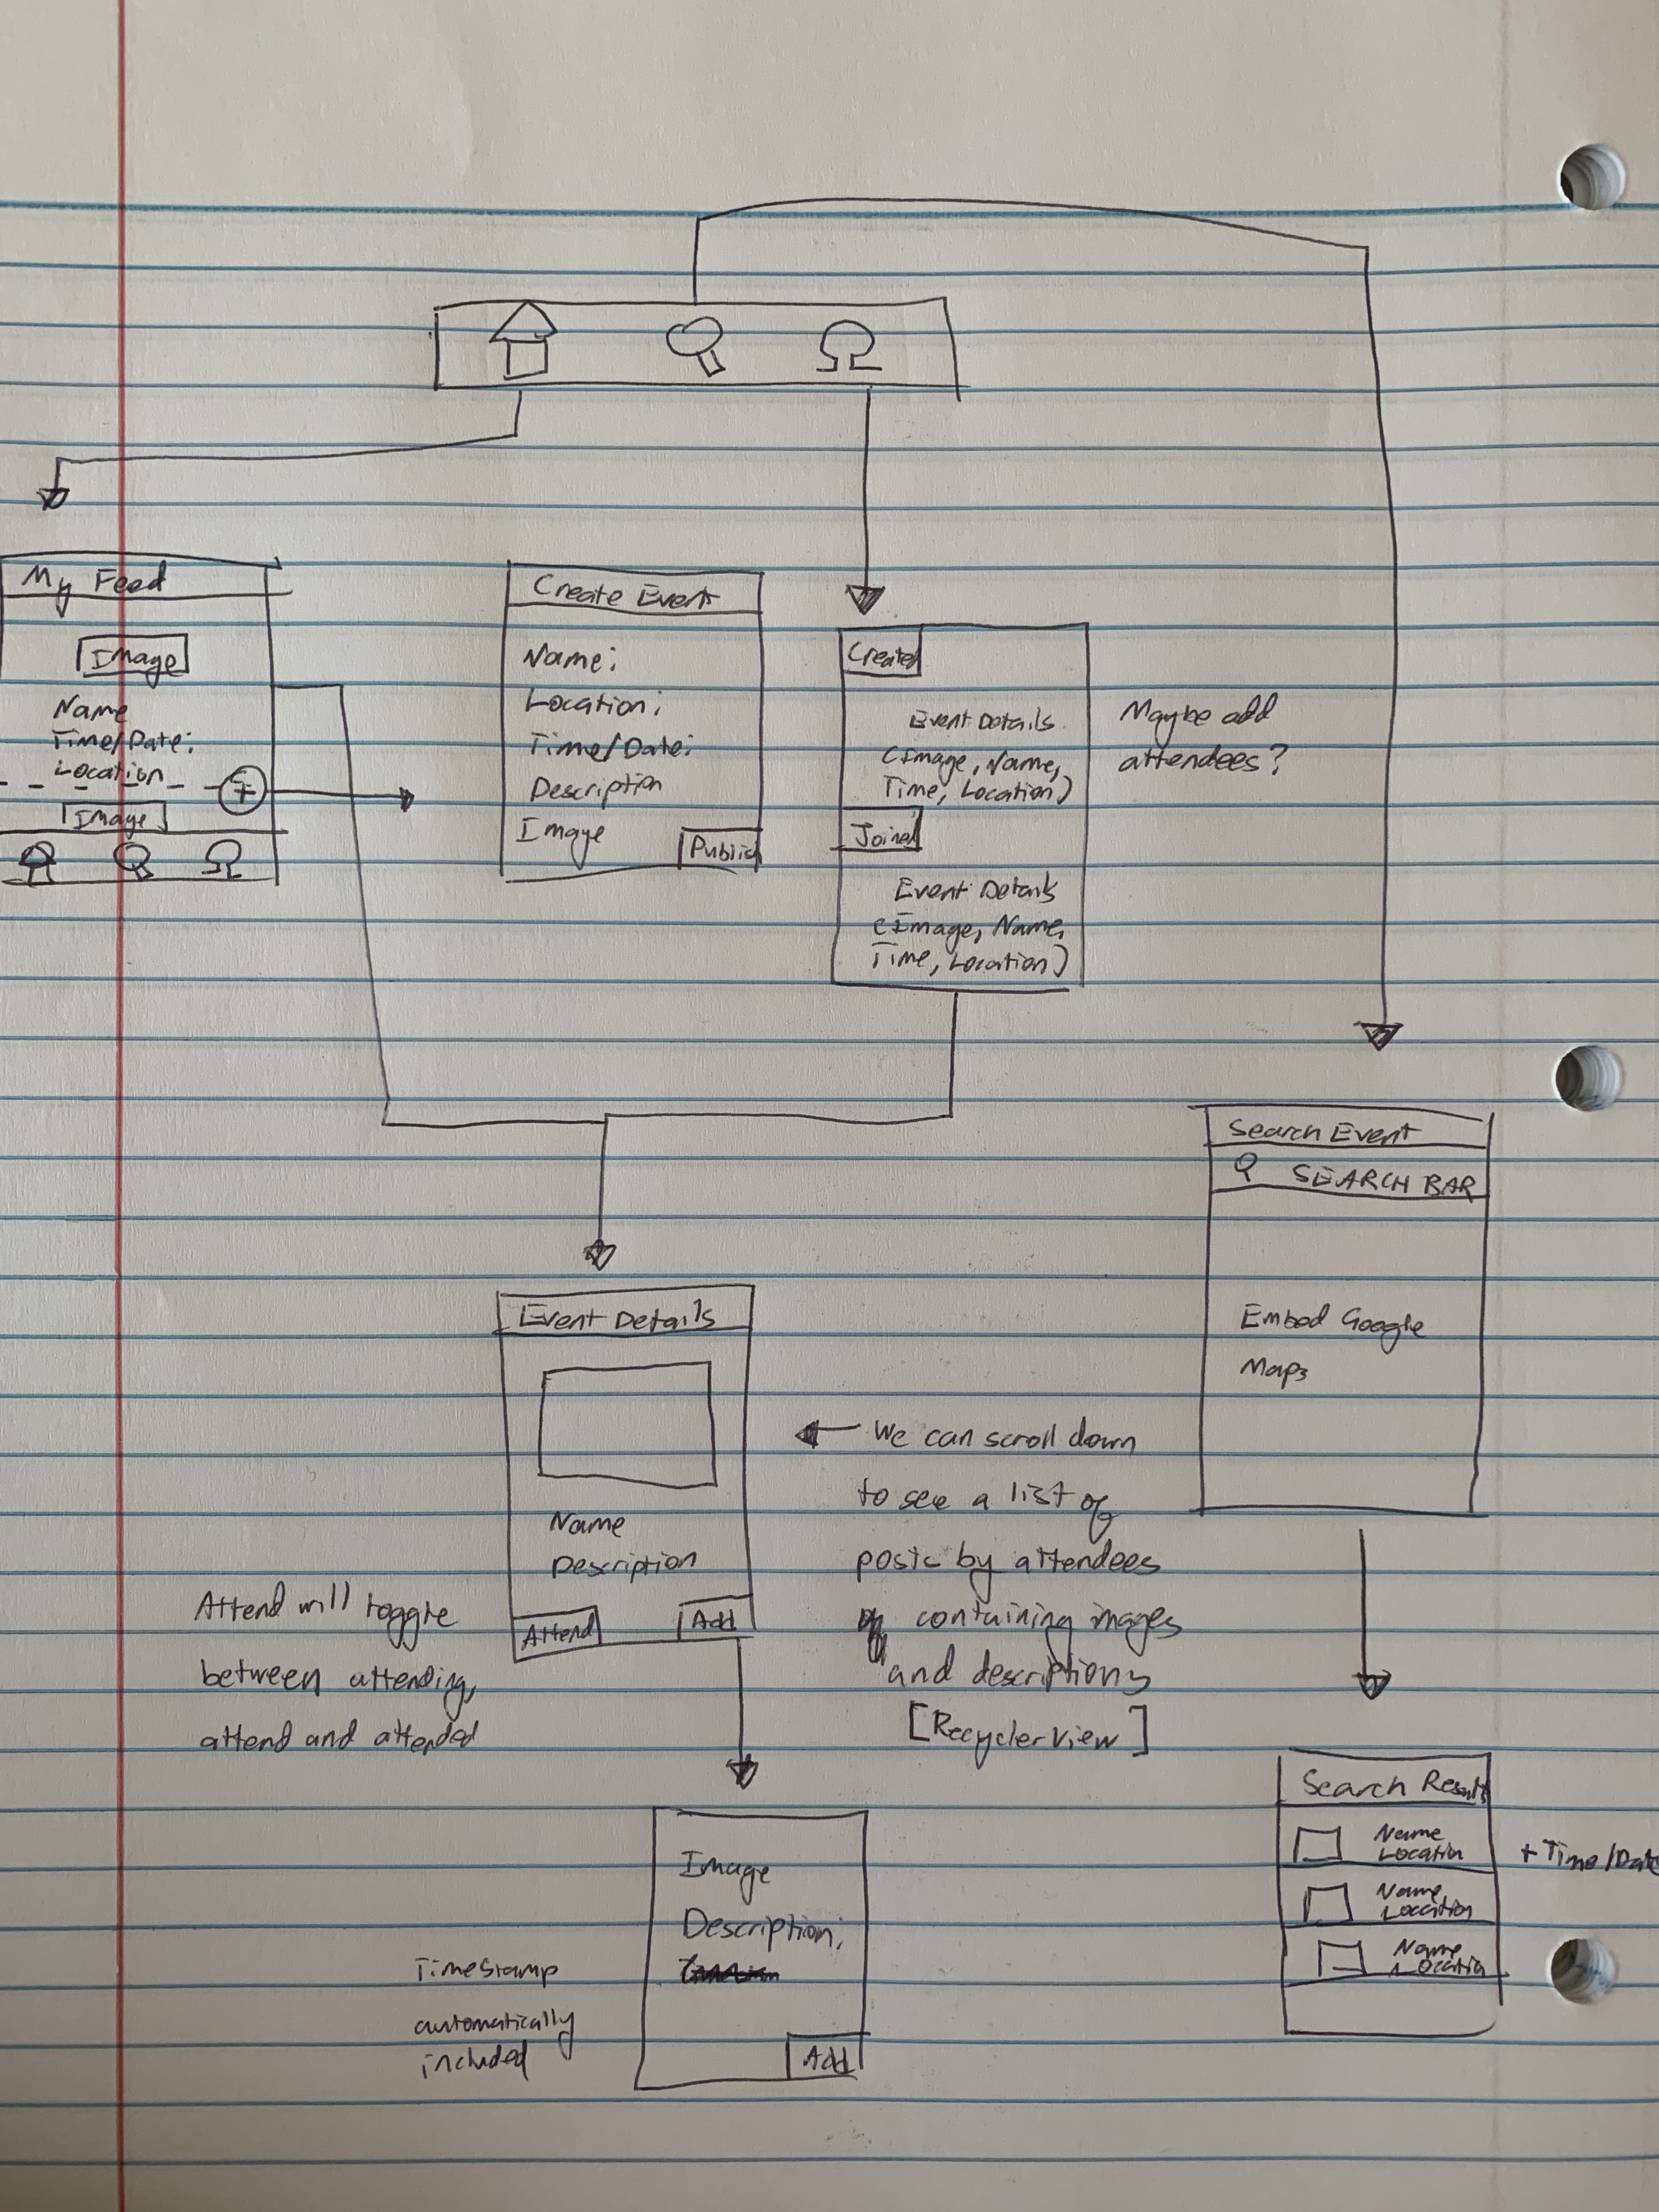 My Feed
Image
Name
Time/Date:
Location
+
Image
Create Event
Name:
Location:
Time/Date:
Description
Image
Publish
Created
Event Details
(Image, Name,
Time, Location)
Joined
Event Details
(Image, Name,
Time, Location)
Maybe add
attendees?
Search Event
SEARCH BAR
Embed Google
Maps
Event Details
Name
Description
Attend
Add
Attend will toggle
between attending,
attend and attended
We can scroll down
to see a list of
posts by attendees
containing images
and descriptions
[RecyclerView]
Image
Description:
Add
Timestamp
automatically
included
Search Results
Name
Location
Name
Location
Name
Location
+ Time/Date